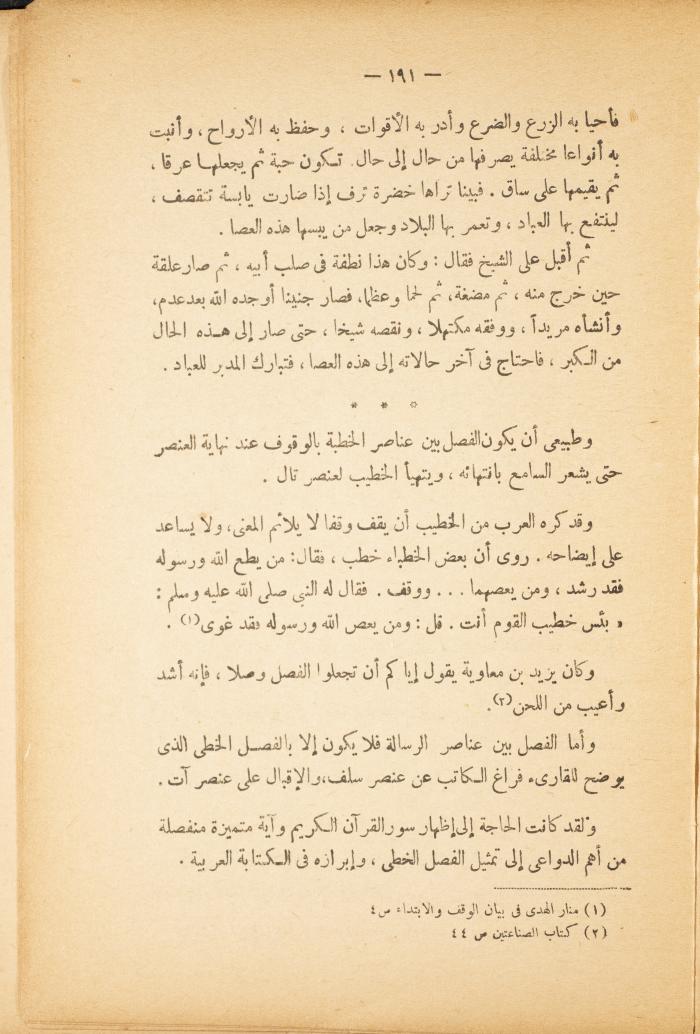 — ١٩١ —
فأحيا به الزرع والضرع وأدر به الأقوات ، وحفظ به الأرواح ، وأنبت
به أنواعا مختلفة يصرفها من حال إلى حال . تكون حبة ثم يجعلها عرقا ،
ثم يقيمها على ساق . فبينا تراها خضرة ترف إذا صارت يابسة تتقصف ،
لينتفع بها العباد ، وتعمر بها البلاد وجعل من يبسها هذه العصا .
ثم أقبل على الشيخ فقال : وكان هذا نطفة فى صلب أبيه ، ثم صار علقة
حين خرج منه ، ثم مضغة، ثم لحما وعظما، فصار جنينا أوجده الله بعد عدم،
وأنشأه مريداً ، ووفقه مكتهلا ، ونقصه شيخا ، حتى صار إلى هذه الحال
من الكبر ، فاحتاج فى آخر حالاته إلى هذه العصا ، فتبارك المدبر للعباد .
* * *
وطبيعى أن يكون الفصل بين عناصر الخطبة بالوقوف عند نهاية العنصر
حتى يشعر السامع بانتهائه ، ويتهيأ الخطيب لعنصر تال .
وقد كره العرب من الخطيب أن يقف وقفا لا يلائم المعنى، ولا يساعد
على إيضاحه . روى أن بعض الخطباء خطب ، فقال: من يطع الله ورسوله
فقد رشد ، ومن يعصهما ... ووقف . فقال له النبى صلى الله عليه وسلم :
« بئس خطيب القوم أنت . قل : ومن يعص الله ورسوله فقد غوى(١) .
وكان يزيد بن معاوية يقول إياكم أن تجعلوا الفصل وصلا ، فإنه أشد
وأعيب من اللحن(٢).
وأما الفصل بين عناصر الرسالة فلا يكون إلا بالفصل الخطى الذى
يوضح للقارىء فراغ الكاتب عن عنصر سلف، والإقبال على عنصر آت .
ولقد كانت الحاجة إلى إظهار سور القرآن الكريم وآية متميزة منفصلة
من أهم الدواعى إلى تمثيل الفصل الخطى ، وإبرازه فى الكتابة العربية .
(١) منار الهدى فى بيان الوقف والابتداء ص ٤
(٢) كتاب الصناعتين ص ٤٤